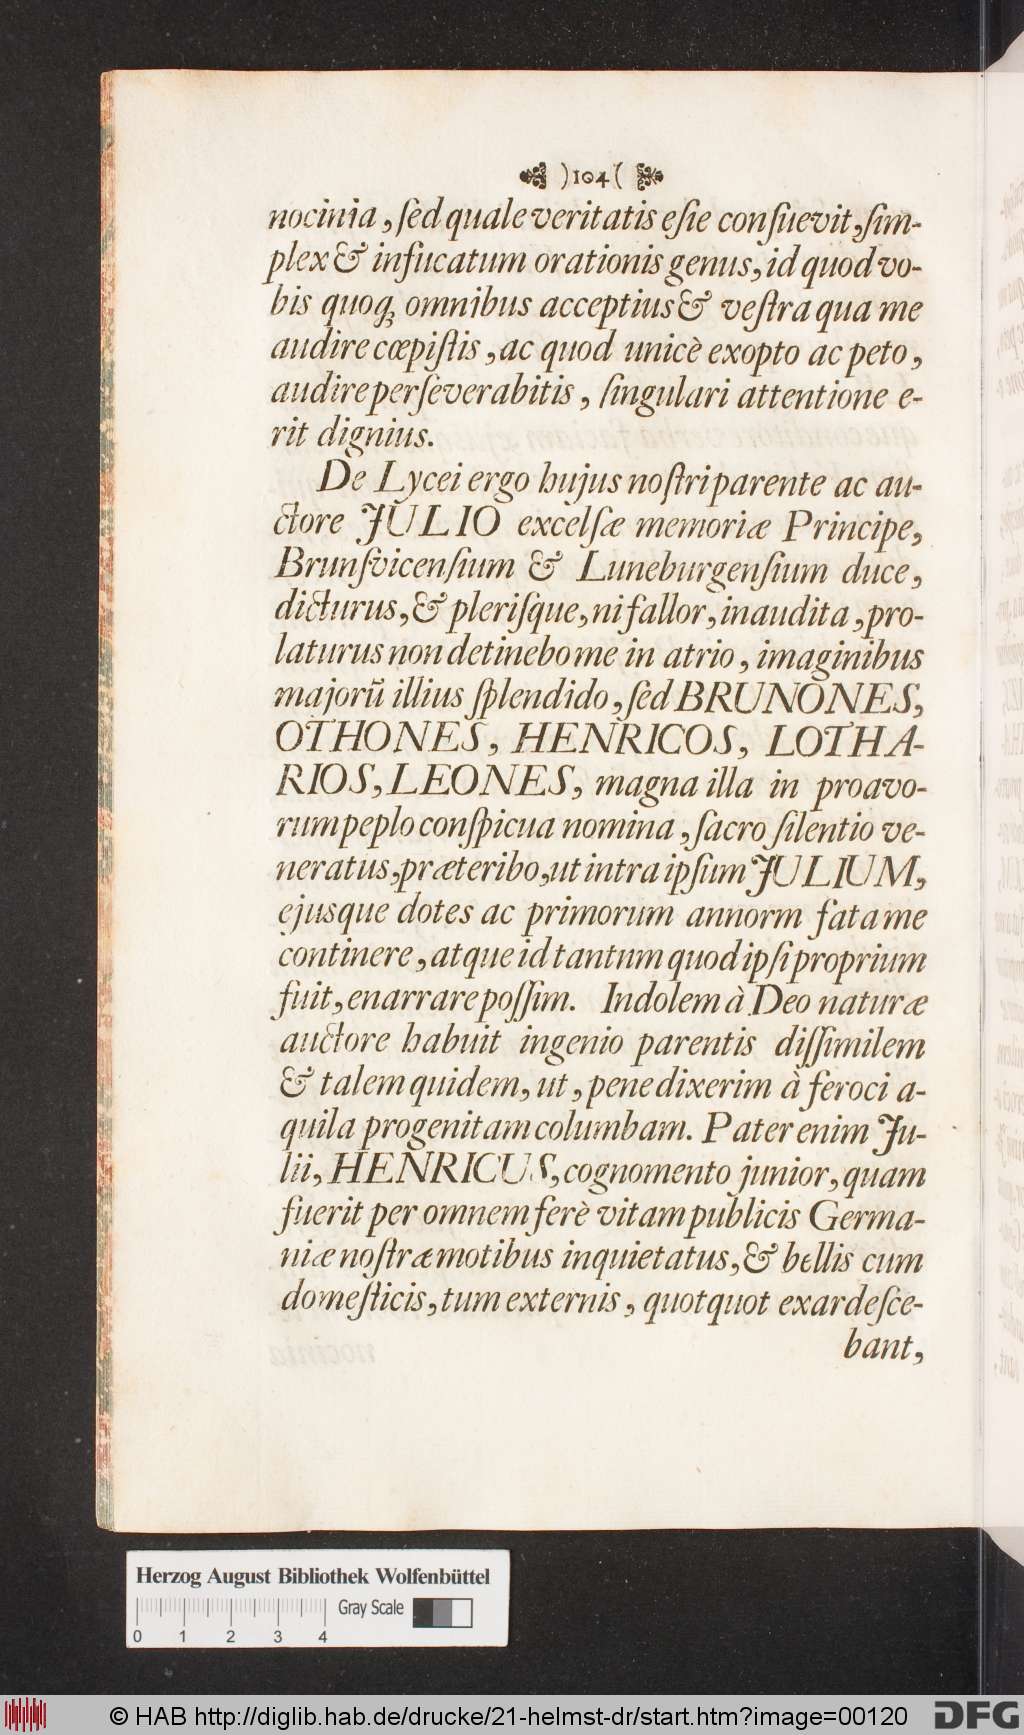 )104(
nocinia, ſed quale veritatis eſſe conſuevit, ſim-
plex & infucatum orationis genus, id quod vo-
bis quoq; omnibus acceptius & veſtra qua me
audire cœpiſtis, ac quod unicè exopto ac peto,
audire perſeverabitis, ſingulari attentione e-
rit dignius.
De Lycei ergo hujus noſtri parente ac au-
ctore JULIO excelſæ memoriæ Principe,
Brunſvicenſium & Luneburgenſium duce,
dicturus, & pleriſque, ni fallor, inaudita, pro-
laturus non detinebo me in atrio, imaginibus
majorū illius ſplendido, ſed BRUNONES,
OTHONES, HENRICOS, LOTHA-
RIOS, LEONES, magna illa in proavo-
rum peplo conſpicua nomina, ſacro ſilentio ve-
neratus, præteribo, ut intra ipſum JULIUM,
ejusque dotes ac primorum annorm fata me
continere, atque id tantum quod ipſi proprium
fuit, enarrare poſſim. Indolem à Deo naturæ
auctore habuit ingenio parentis diſſimilem
& talem quidem, ut, pene dixerim à feroci a-
quila progenitam columbam. Pater enim Ju-
lii, HENRICUS, cognomento junior, quam
fuerit per omnem ferè vitam publicis Germa-
niæ noſtræ motibus inquietatus, & bellis cum
domeſticis, tum externis, quotquot exardeſce-
bant,
Herzog August Bibliothek Wolfenbüttel
Gray Scale
0 1 2 3 4
© HAB http://diglib.hab.de/drucke/21-helmst-dr/start.htm?image=00120
DFG